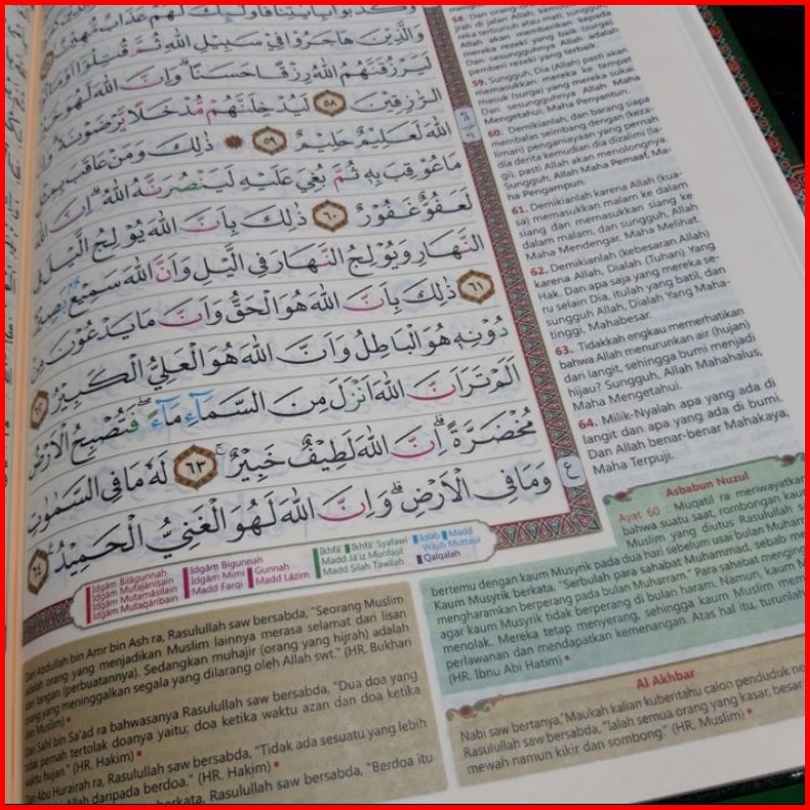 وَالَّذِيْنَ هَاجَرُوْا فِيْ سَبِيْلِ اللّٰهِ ثُمَّ قُتِلُوْٓا اَوْ مَاتُوْا
لَيَرْزُقَنَّهُمُ اللّٰهُ رِزْقًا حَسَنًاۗ وَاِنَّ اللّٰهَ لَهُوَ خَيْرُ
الرّٰزِقِيْنَ ٥٨ لَيُدْخِلَنَّهُمْ مُّدْخَلًا يَّرْضَوْنَهٗۗ وَاِنَّ
اللّٰهَ لَعَلِيْمٌ حَلِيْمٌ ٥٩ ۞ ذٰلِكَ وَمَنْ عَاقَبَ بِمِثْلِ
مَا عُوْقِبَ بِهٖ ثُمَّ بُغِيَ عَلَيْهِ لَيَنْصُرَنَّهُ اللّٰهُۗ اِنَّ اللّٰهَ
لَعَفُوٌّ غَفُوْرٌ ٦٠ ذٰلِكَ بِاَنَّ اللّٰهَ يُوْلِجُ الَّيْلَ فِى
النَّهَارِ وَيُوْلِجُ النَّهَارَ فِى الَّيْلِ وَاَنَّ اللّٰهَ سَمِيْعٌۢ بَصِيْرٌ
٦١ ذٰلِكَ بِاَنَّ اللّٰهَ هُوَ الْحَقُّ وَاَنَّ مَا يَدْعُوْنَ مِنْ
دُوْنِهٖ هُوَ الْبَاطِلُ وَاَنَّ اللّٰهَ هُوَ الْعَلِيُّ الْكَبِيْرُ ٦٢
اَلَمْ تَرَ اَنَّ اللّٰهَ اَنْزَلَ مِنَ السَّمَاۤءِ مَاۤءًۖ فَتُصْبِحُ الْاَرْضُ
مُخْضَرَّةًۗ اِنَّ اللّٰهَ لَطِيْفٌ خَبِيْرٌ ٦٣ لَهٗ مَا فِى السَّمٰوٰتِ
وَمَا فِى الْاَرْضِۗ وَاِنَّ اللّٰهَ لَهُوَ الْغَنِيُّ الْحَمِيْدُ ٦٤
58. Dan orang-orang
jrah di jalan Allah, kemudian
reka terbunuh atau mati, sungguh,
Allah akan memberikan kepada
mereka rezeki yang baik (surga).
Dan sesungguhnya Allah adalah
pemberi rezeki yang terbaik.
59. Sungguh, Dia (Allah) pasti akan
memasukkan mereka ke tempat
masuk (surga) yang mereka sukai.
Dan sesungguhnya Allah Maha
Mengetahui, Maha Penyantun.
60. Demikianlah, dan barang siapa
membalas seimbang dengan (keza-
liman) penganiayaan yang pernah
dia derita kemudian dia dizalimi (la-
gi), pasti Allah akan menolongnya.
Sungguh, Allah Maha Pemaaf, Ma-
ha Pengampun.
61. Demikianlah karena Allah (kua-
sa) memasukkan malam ke dalam
siang dan memasukkan siang ke
dalam malam, dan sungguh, Allah
Maha Mendengar, Maha Melihat.
62. Demikianlah (kebesaran Allah)
karena Allah, Dialah (Tuhan) Yang
Hak. Dan apa saja yang mereka se-
ru selain Dia, itulah yang batil, dan
sungguh Allah, Dialah Yang Maha-
tinggi, Mahabesar.
63. Tidakkah engkau memerhatikan
bahwa Allah menurunkan air (hujan)
dari langit, sehingga bumi menjadi
hijau? Sungguh, Allah Mahahalus,
Maha Mengetahui.
64. Milik-Nyalah apa yang ada di
langit dan apa yang ada di bumi.
Dan Allah benar-benar Mahakaya,
Maha Terpuji.
ع
Idgām Bilāgunnah
Idgām Mutajānisain
Idgām Mutamāsilain
Idgām Mutaqāribain
Idgām Bigunnah
Idgām Mimi
Madd Farqi
Gunnah
Madd Lāzim
Ikhfā' Ikhfā' Syafawi
Madd Jā'iz Munfasil
Madd Silah Tawilah
Iqlāb Madd
Wājib Muttasil
Qalqalah
Asbabun Nuzul
Ayat 60 Muqatil ra meriwayatkan
bahwa suatu saat, rombongan kaum
Muslim yang diutus Rasulullah
bertemu dengan kaum Musyrik pada dua hari sebelum usai bulan Muharam
Kaum Musyrik berkata, "Serbulah para sahabat Muhammad, sebab me
mengharamkan berperang pada bulan Muharram." Para sahabat mengingin
agar kaum Musyrik tidak berperang di bulan haram. Namun, kaum M
menolak. Mereka tetap menyerang, sehingga kaum Muslim mem
perlawanan dan mendapatkan kemenangan. Atas hal itu, turunlah
(HR. Ibnu Abi Hatim)
Dari Abdullah bin Amr bin Ash ra, Rasulullah saw bersabda, "Seorang Muslim
adalah orang yang menjadikan Muslim lainnya merasa selamat dari lisan
dan tangan (perbuatannya). Sedangkan muhajir (orang yang hijrah) adalah
orang yang meninggalkan segala yang dilarang oleh Allah swt." (HR. Bukhari
dan Muslim)
Dari Sahl bin Sa'ad ra bahwasanya Rasulullah saw bersabda, "Dua doa yang
tidak pernah tertolak doanya yaitu; doa ketika waktu azan dan doa ketika
waktu hujan." (HR. Hakim)
Dari Abu Hurairah ra, Rasulullah saw bersabda, "Tidak ada sesuatu yang lebih
Allah daripada berdoa." (HR. Hakim)
berkata, Rasulullah saw bersabda, "Berdoa itu
Al Akhbar
Nabi saw bertanya,"Maukah kalian kuberitahu calon penduduk ne
Rasulullah saw bersabda, "Ialah semua orang yang kasar, besar
mewah namun kikir dan sombong." (HR. Muslim)